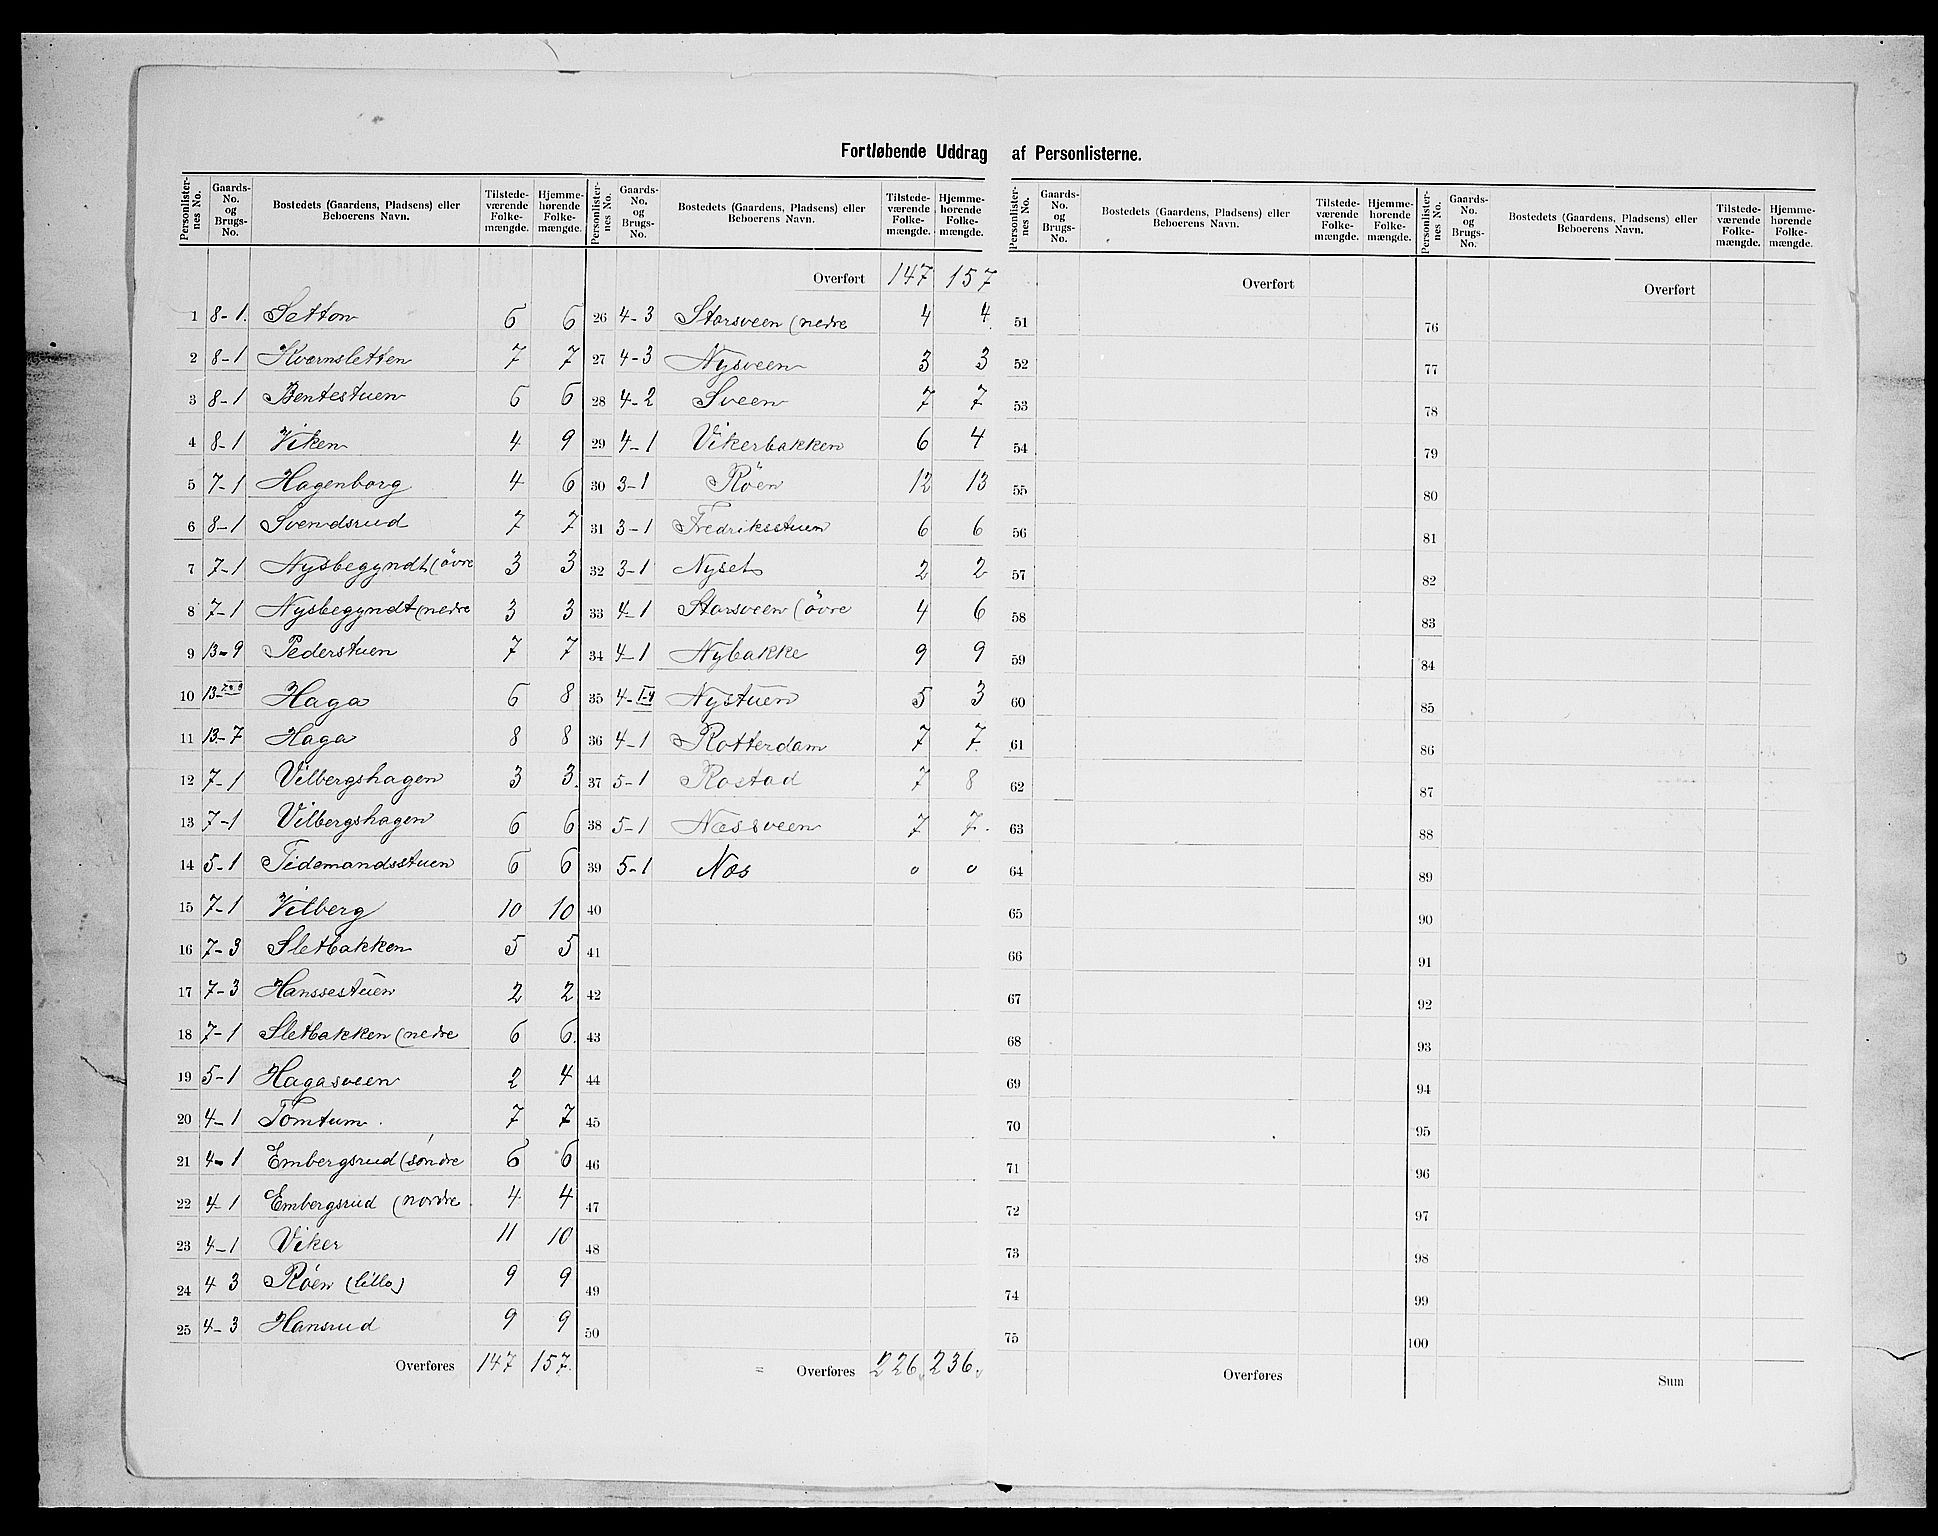 Fortløbende Uddrag af Personlisterne.
Personlister-nes No. Gaards-No. og Brugs-No. Bostedets (Gaardens, Pladsens) eller Beboerens Navn. Tilstede-værende Folke-mængde. Hjemme-hørende Folke-mængde.
1 8-1. Setton 6 6
2 8-1 Kvernsletten 7 7
3 8-1 Bentestuen 6 6
4 8-1 Viken 4 9
5 7-1 Hagenborg 4 6
6 8-1 Svendsrud 7 7
7 7-1 Nysbegyndt (övre 3 3
8 7-1 Nysbegyndt (nedre 3 3
9 13-9 Pederstuen 7 7
10 13- Haga 6 8
11 13-7 Haga 8 8
12 7-1 Vilbergshagen 3 3.
13 7-1 Vilbergshagen 6 6
14 5-1 Tidemandsstuen 6 6
15 7-1 Vilberg 10 10
16 7-3 Sletbakken 5 5
17 7-3 Hanssestuen 2 2
18 7-1 Sletbakken (nedre 6 6.
19 5-1 Hagasveen 2 4
20 4-1 Tomtum. 7 7
21 4-1 Embergsrud (söndre 6 6
22 4-1 Embergsrud (nordre. 4 4
23 4-1 Viker 11 10
24 4 3 Röen (lille) 9 9
25 4-3 Hansrud 9 9
Overføres 147 157.
Personlister-nes No. Gaards-No. og Brugs-No. Bostedets (Gaardens, Pladsens) eller Beboerens Navn. Tilstede-værende Folke-mængde. Hjemme-hørende Folke-mængde.
Overført 147 157
26 4-3 Storsveen (nedre 4 4.
27 4-3 Nysveen 3 3
28 4-2 Sveen 7 7
29 4-1 Vikerbakken 6 4
30 3-1 Röen 12 13
31 3-1 Fredriksstuen 6 6
32 3-1 Nyset 2 2
33 4-1 Storsveen (övre 4 6
34 4-1 Nybakke 9 9
35 4-1-4 Nystuen 5 3
36 4-1 Rotterdam 7 7.
37 5-1 Rostad 7 8
38 5-1 Næssveen 7 7.
39 5-1 Næs 0 0
40
41
42
43
44
45
46
47
48
49
50
= Overføres 226. 236.
Personlister-nes No. Gaards-No. og Brugs-No. Bostedets (Gaardens, Pladsens) eller Beboerens Navn. Tilstede-værende Folke-mængde. Hjemme-hørende Folke-mængde.
Overført
51
52
53
54
55
56
57
58
59
60
61
62
63
64
65
66
67
68
69
70
71
72
73
74
75
Overføres
Personlister-nes No. Gaards-No. og Brugs-No. Bostedets (Gaardens, Pladsens) eller Beboerens Navn. Tilstede-værende Folke-mængde. Hjemme-hørende Folke-mængde.
Overført
76
77
78
79
80
81
82
83
84
85
86
87
88
89
90
91
92
93
94
95
96
97
98
99
100
Sum